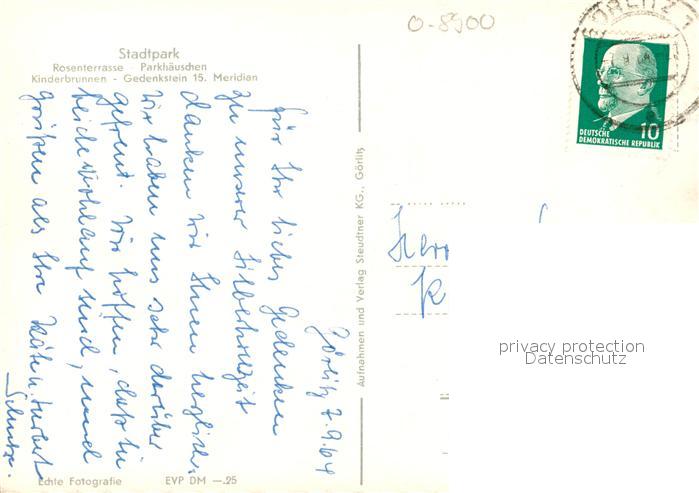 O-8900
Stadtpark
Rosenterrasse Parkhäuschen
Kinderbrunnen - Gedenkstein 15. Meridian
GÖRLITZ 1
10
DEUTSCHE
DEMOKRATISCHE REPUBLIK
Görlitz 7.9.64
Für Ihr liebes Gedenken
zu unserer Silberhochzeit
danken wir Ihnen herzlich.
Wir haben uns sehr darüber
gefreut. Wir hoffen, daß Sie
beide wohlauf sind, und
grüßen als Ihre Käte u. Herbert
Aufnahmen und Verlag Steudtner KG., Görlitz
Herr
K
privacy protection
Datenschutz
Echte Fotografie EVP DM —.25